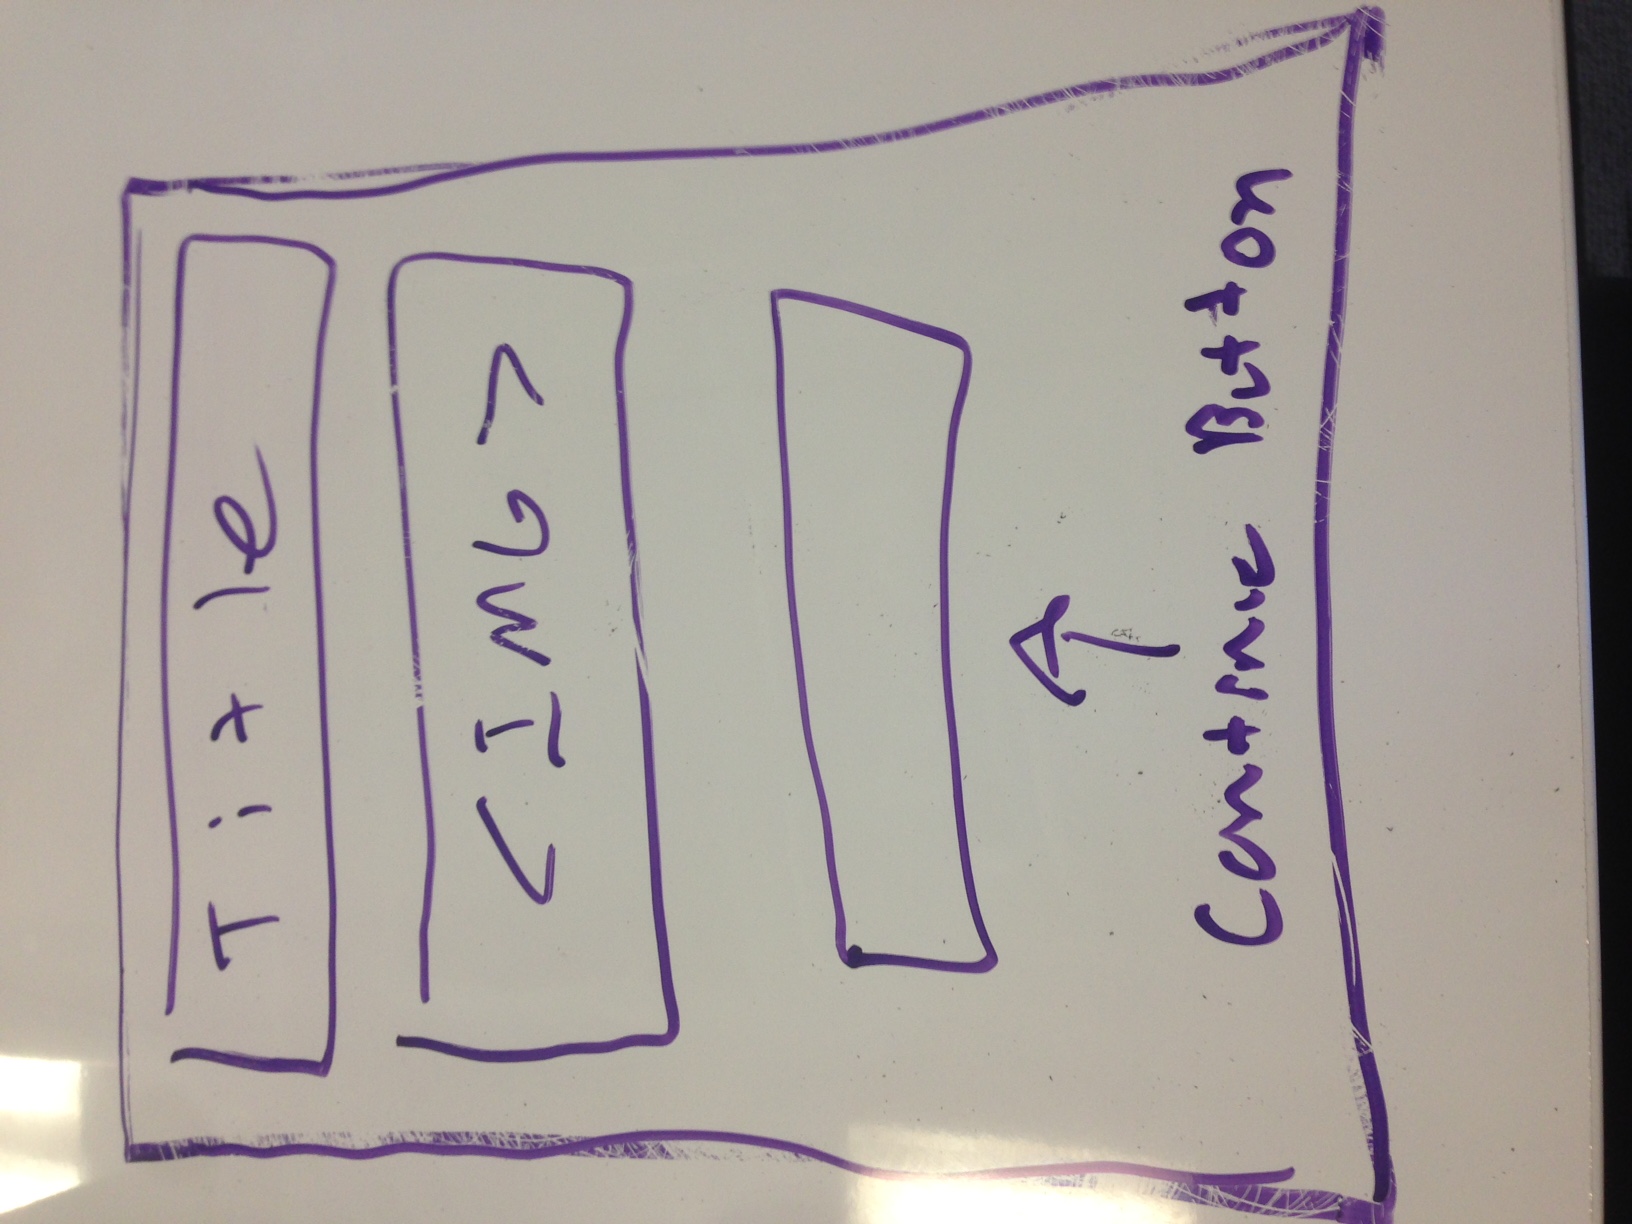 Title
<IMG>
Continue Button